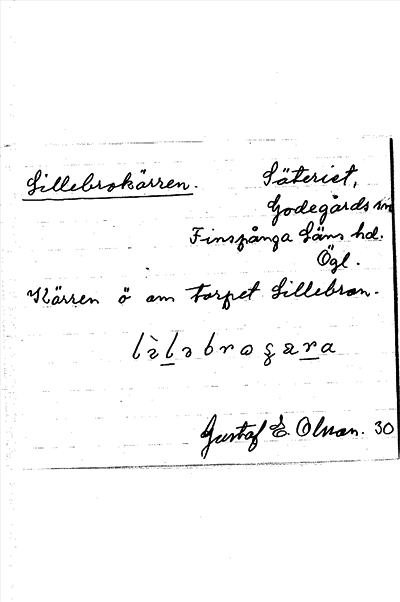 Lillebrokärren. Säteriet,
Godegårds sn
Finspånga Läns hd.
Ögl.
Kärren ö om torpet Lillebron.
Gustaf E. Olsson. 30